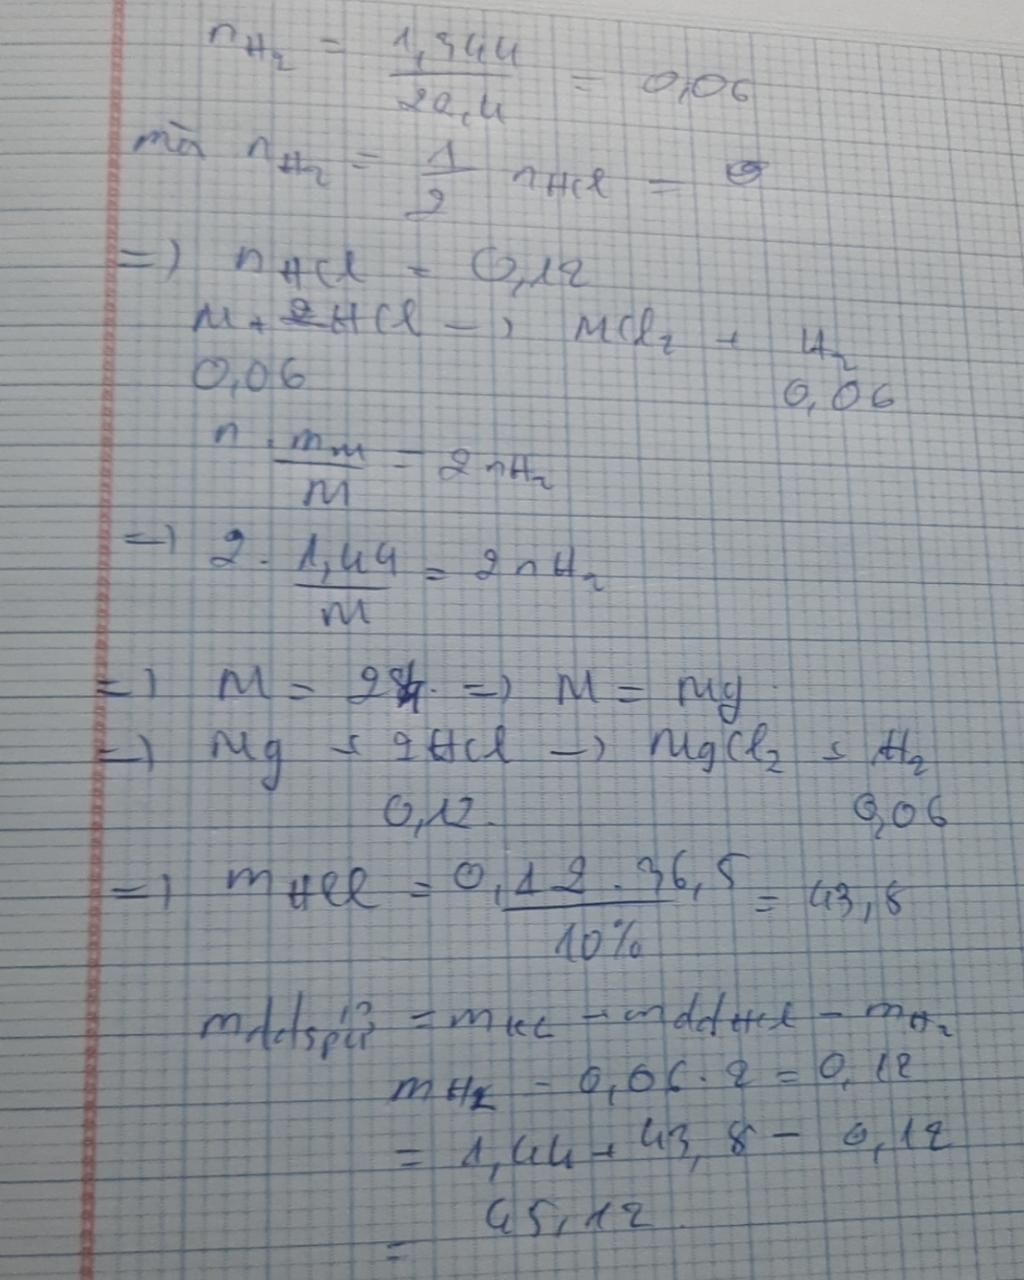 nH₂ = 1,344 / 22,4 = 0,06
mà nH₂ = 1/2 nHCl =
=) nHCl = 0,12
M + 2HCl -> MCl₂ + H₂
0,06 0,06
n . mM / M = 2nH₂
=) 2 . 1,44 / M = 2nH₂
=) M = 24 =) M = Mg
=) Mg + 2HCl -> MgCl₂ + H₂
0,12 0,06
=) mHCl = 0,12 . 36,5 / 10% = 43,8
mddspứ = mKL + mddHCl - mH₂
mH₂ = 0,06 . 2 = 0,12
= 1,44 + 43,8 - 0,12
= 45,12